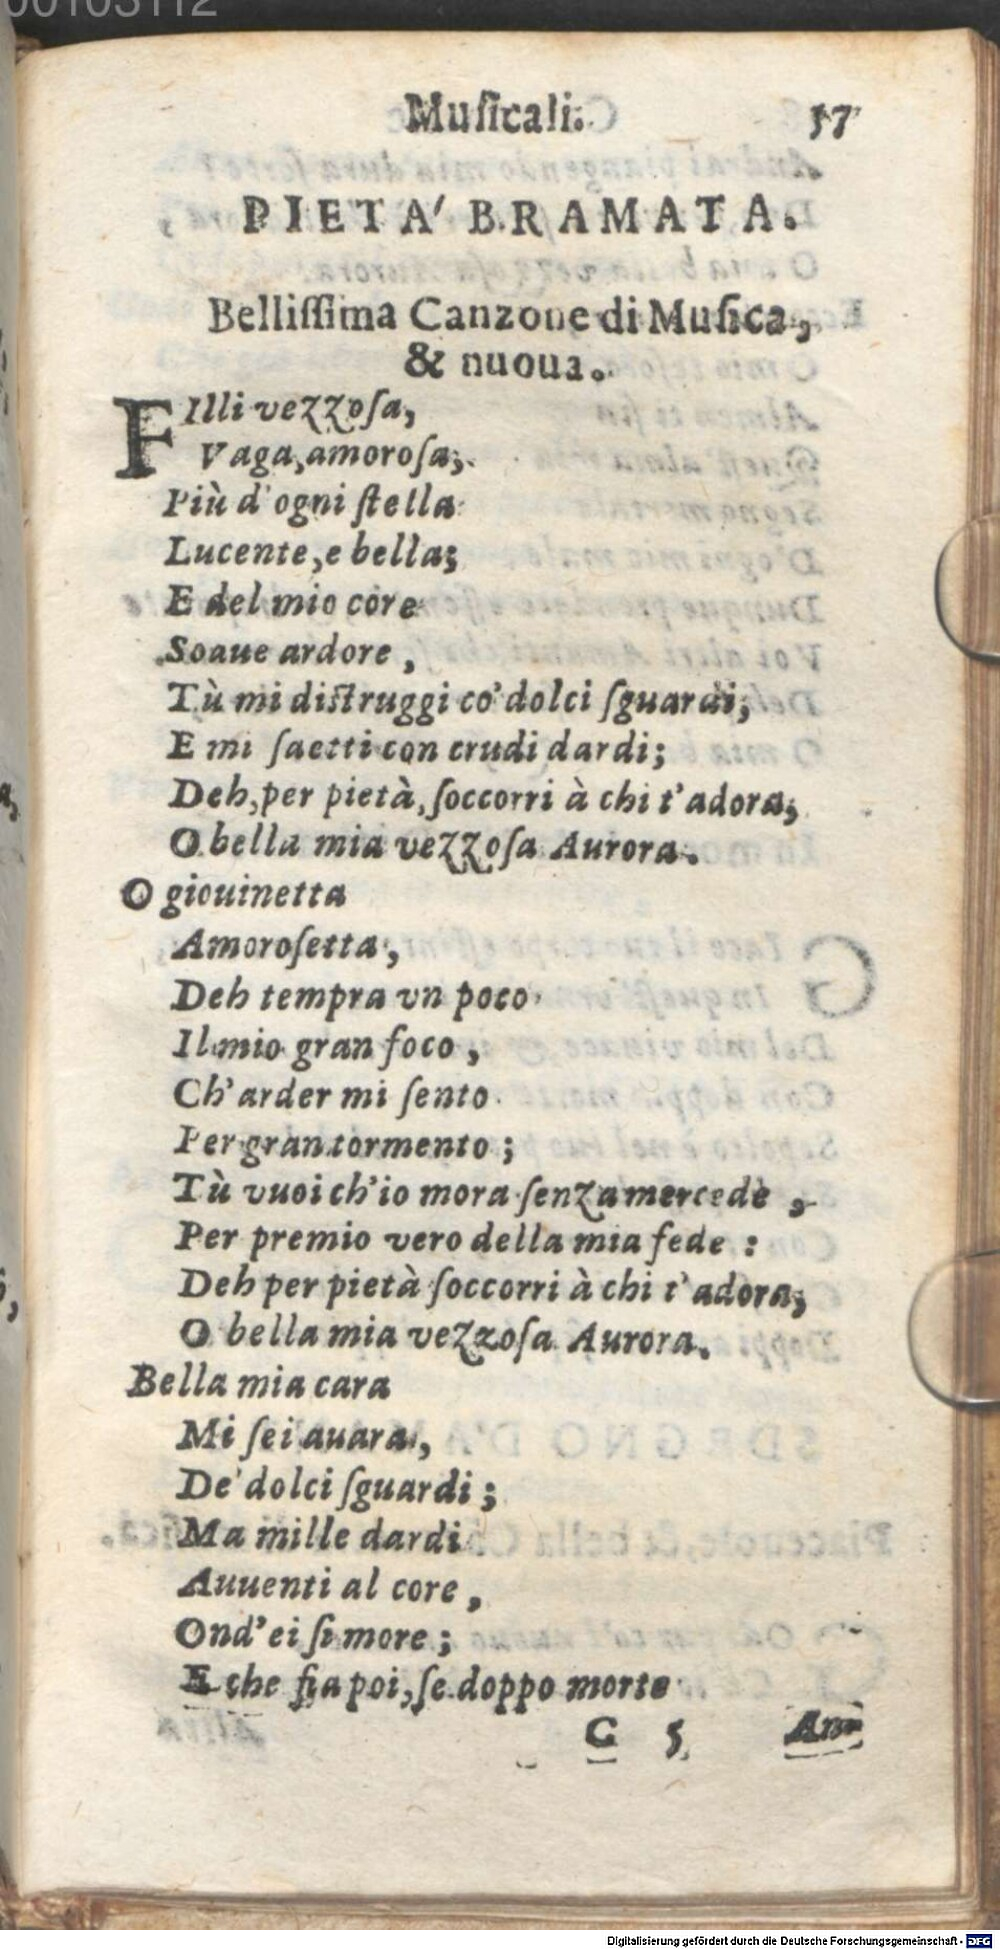 00103112
Muſicali. 57
PIETA' BRAMATA.
Belliſſima Canzone di Muſica,
& nuoua.
FIlli vezzoſa,
Vaga, amoroſa,
Più d'ogni ſtella
Lucente, e bella;
E del mio core
Soaue ardore,
Tù mi diſtruggi co' dolci ſguardi,
E mi ſaetti con crudi dardi;
Deh, per pietà, ſoccorri à chi t'adora,
O bella mia vezzoſa Aurora.
O giouinetta
Amoroſetta,
Deh tempra vn poco
Il mio gran foco,
Ch'arder mi ſento
Per gran tormento;
Tù vuoi ch'io mora ſenza mercede,
Per premio vero della mia fede:
Deh per pietà ſoccorri à chi t'adora,
O bella mia vezzoſa Aurora.
Bella mia cara
Mi ſei auara,
De' dolci ſguardi;
Ma mille dardi
Auuenti al core,
Ond'ei ſi more;
E che fia poi, ſe doppo morte
C 5 An-
Digitalisierung gefördert durch die Deutsche Forschungsgemeinschaft - DFG